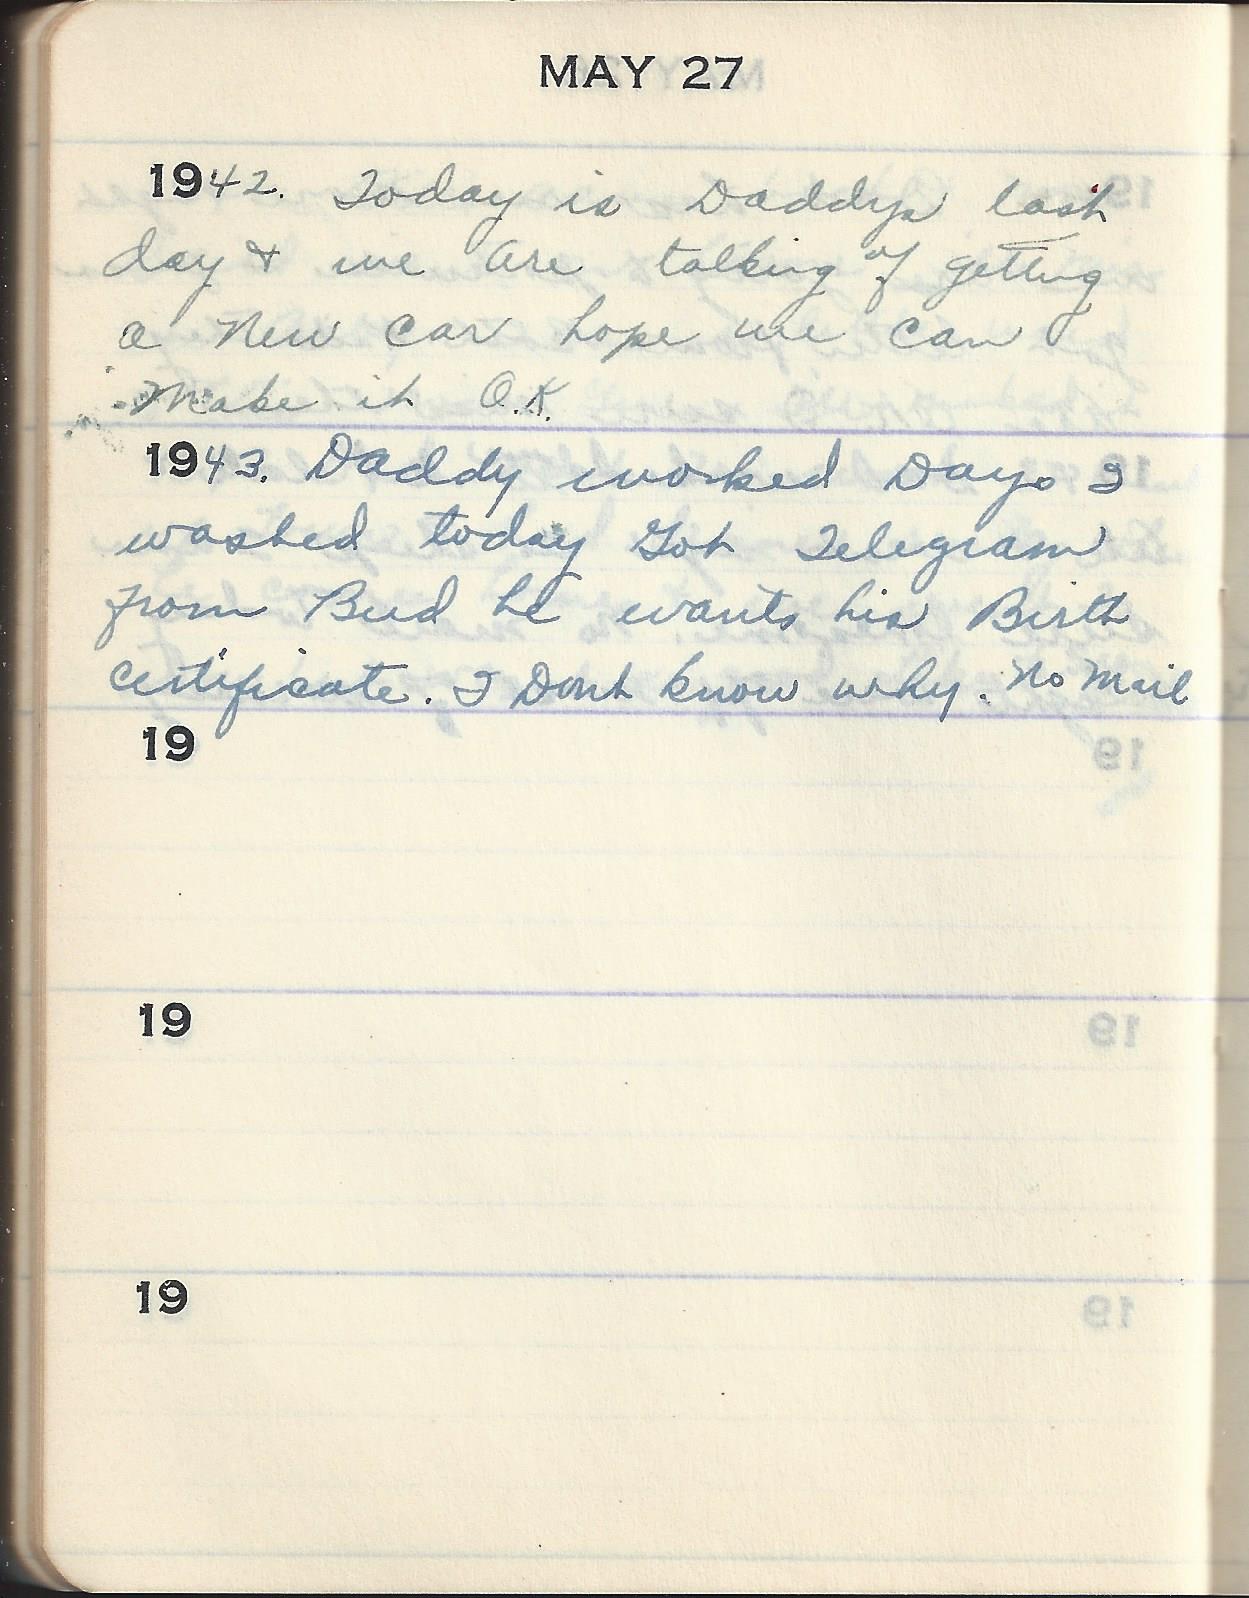 MAY 27
1942. Today is Daddys last
day & we are talking of getting
a New car hope we can
Make it O.K.
1943. Daddy worked Days I
washed today Got Telegram
from Bud he wants his Birth
certificate. I Dont know why. No Mail
19
19
19